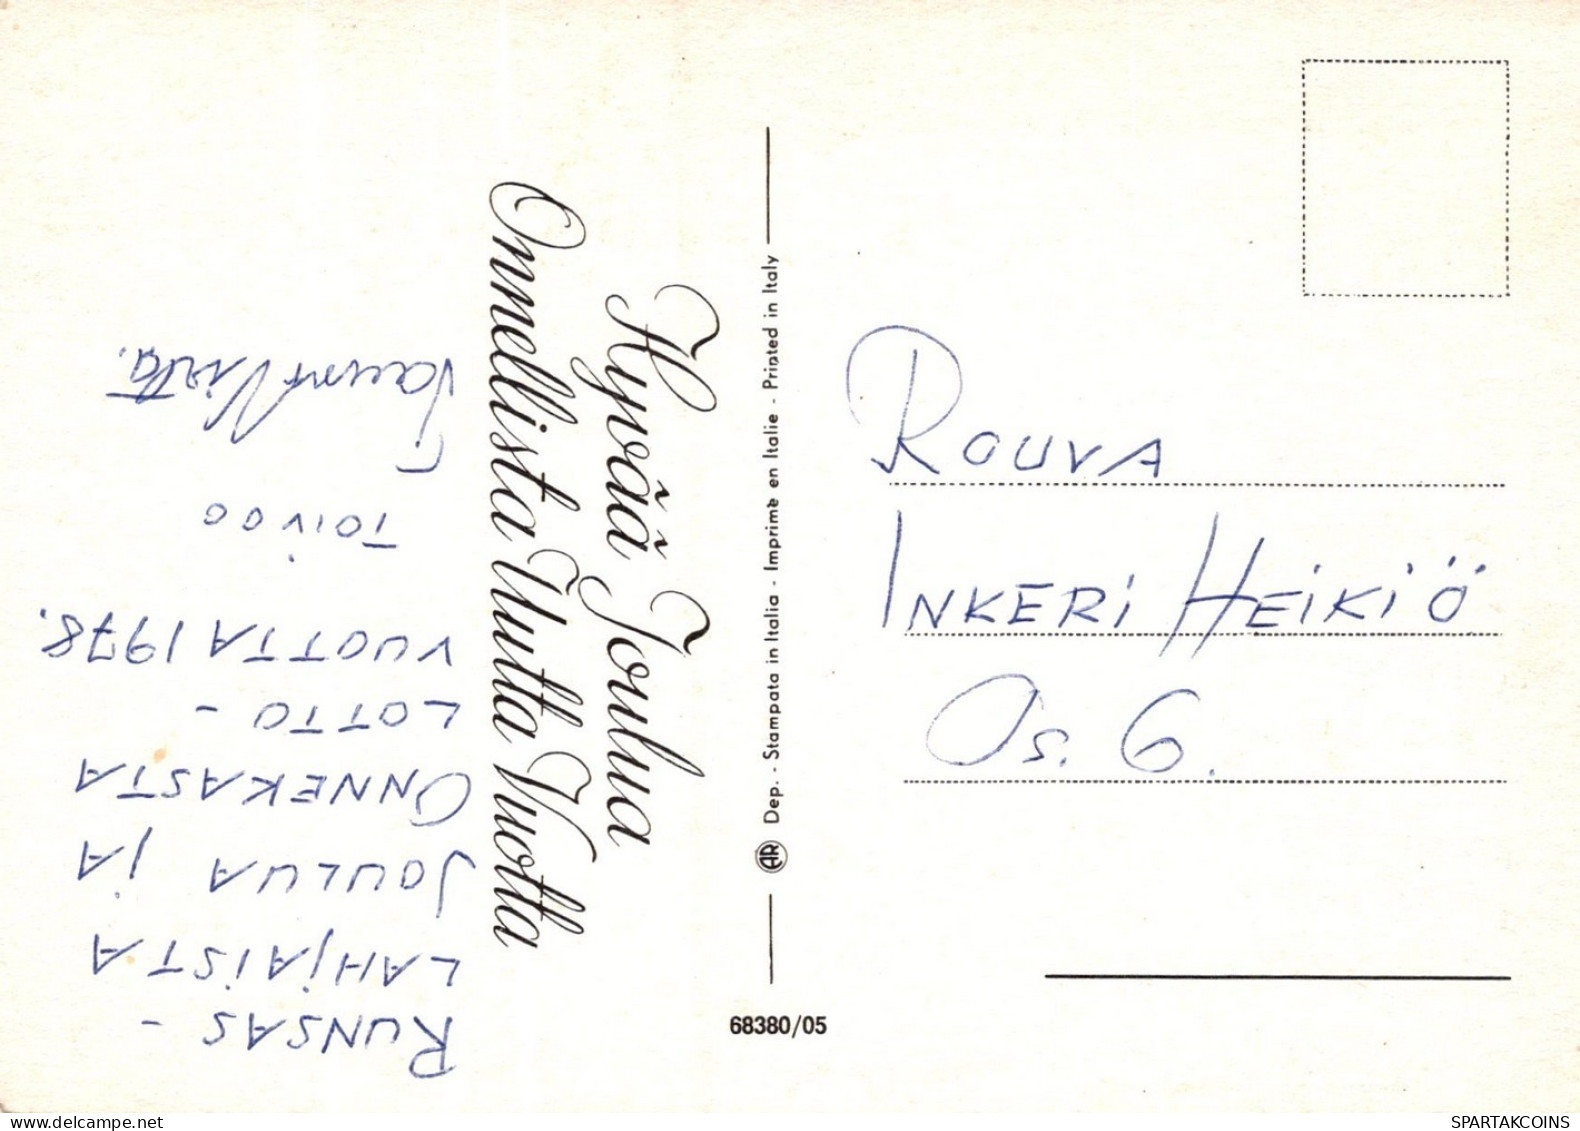 Hyvää Joulua
Onnellista Uutta Vuotta
RUNSAS -
LAHJAISTA
JOULUA JA
ONNEKASTA
LOTTO -
VUOTTA 1978.
TOIVOO
Dep. - Stampata in Italia - Imprimé en Italie - Printed in Italy
AR
68380/05
ROUVA
INKERI HEIKIÖ
Os. 6.
SPARTAKCOINS